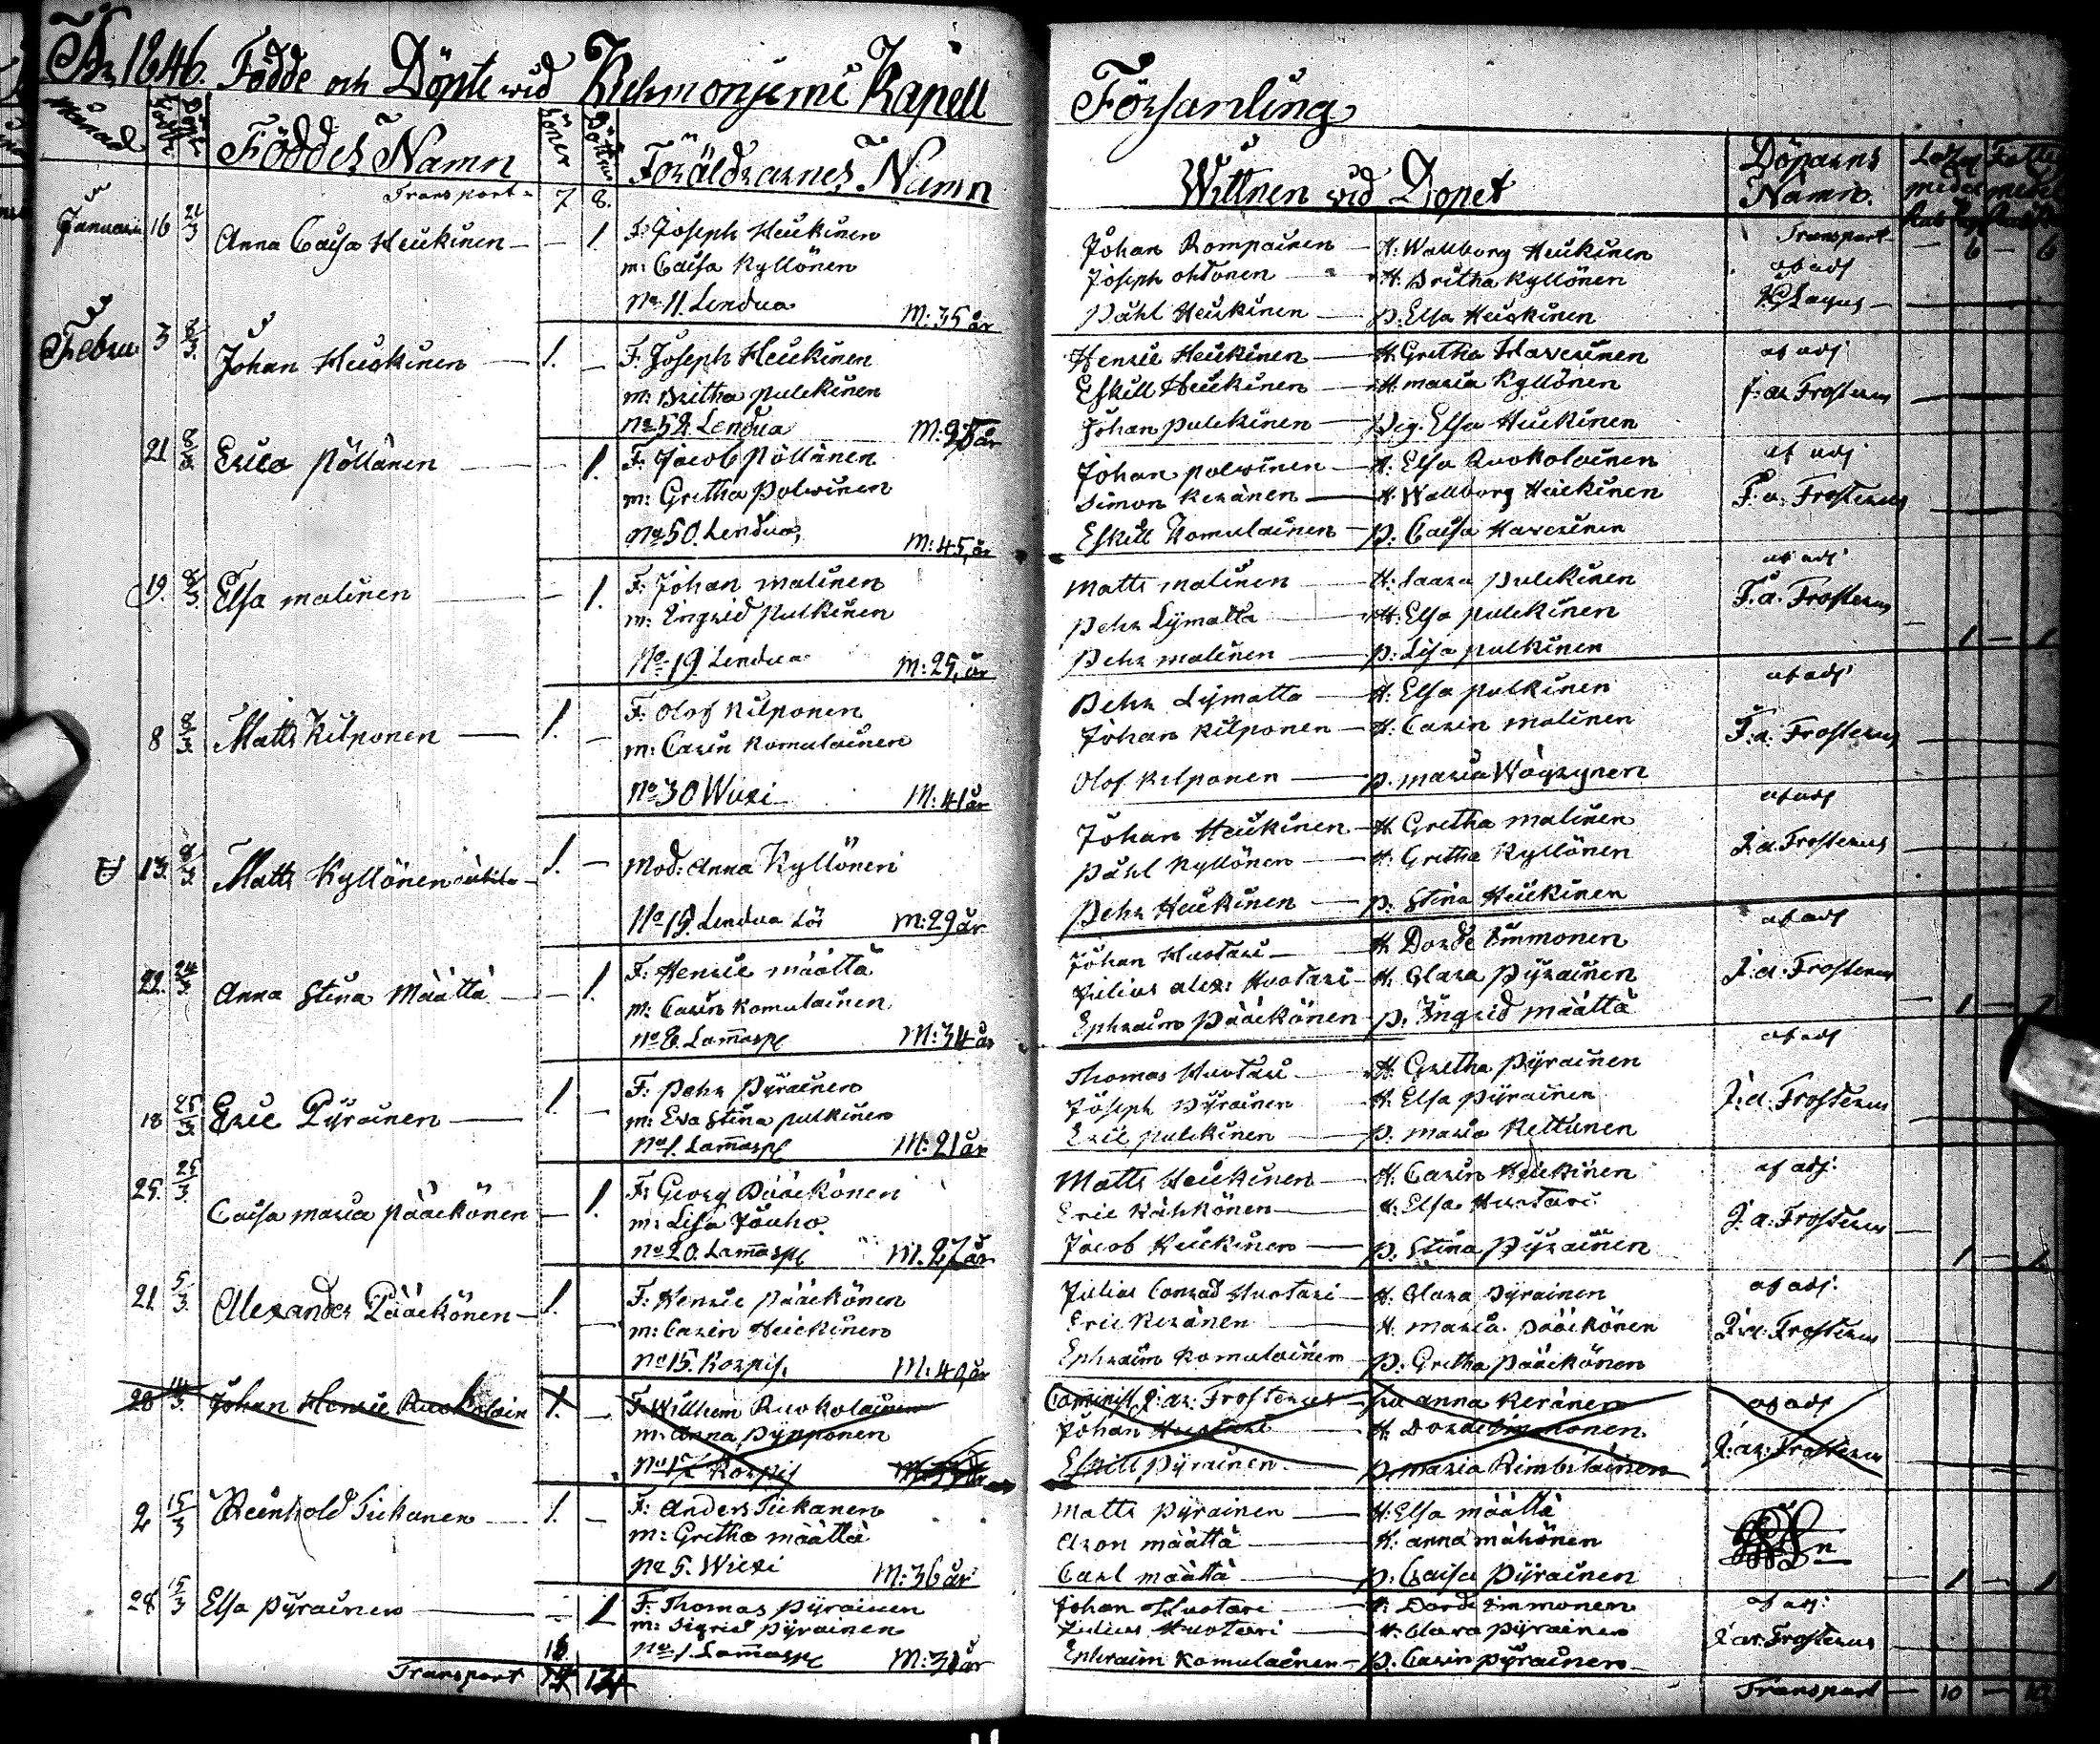 År 1846. Födde och Döpte wid Kuhmonjemi Kapell Församling
Månad Födde Döpte Föddes Namn Söner Döttrar Föräldrarnes Namn
Wittnen wid Dopet Döparens Namn.
Transport 7 8.
Transport 6 — 6
Januari 16 21/3 Anna Caisa Heikinen — 1. F: Joseph Heikinen
m: Caisa Kyllönen
No 11 Lendua M: 35 år
Johan Rompainen — H: Wallborg Heikinen af adj
Joseph Ohtonen — H. Britha Kyllönen
Påhl Heikinen — p. Elsa Heikinen Lagus
Febru 3 8/3 Johan Heikinen 1. — F. Joseph Heikinen
m: Britha Pulkinen
No 52. Lendua
Henric Heikinen — H. Gretha Haverinen af adj
Eskill Heikinen — H. Maria Kyllönen J: ax Frosterus
Johan Pulkinen — Pig. Elsa Heikinen
21 8/3 Erica Pöllänen — 1. F. Jacob Pöllänen
m: Gretha Polwinen
No 50. Lendua, M: 45, år
Johan Polwinen — H. Elsa Ruokolainen af adj
Simon Keränen — H. Wallborg Heikinen J. a. Frosterus
Eskill Komulainen — p. Caisa Haverinen
19. 8/3 Elsa Malinen — 1. F. Johan Malinen
m. Ingrid Pulkinen
No 19 Lendua M: 25, år
Matts Malinen — H: Saara Pulkinen af adj
Pehr Lymatta — H. Elsa Pulkinen J. a. Frosterus
Pehr Malinen — p. Lisa Pulkinen 1 — 1
8 8/3 Matts Kilponen 1. — F. Olof Kilponen
m: Carin Komulainen
No 30 Wiexi M: 41 år
Pehr Lymatta — H. Elsa Pulkinen af adj
Johan Kilponen — H. Carin Malinen J. a. Frosterus
Olof Kilponen — p. Maria Wäyrynen
13. 8/3 Matts Kyllönen oäkta 1. — Mod: Anna Kyllönen
No 19. Lendua Lös M: 29 år
Johan Heikinen — H. Gretha Malinen af adj
Påhl Kyllönen — H: Gretha Kyllönen J. a. Frosterus
Pehr Heikinen — p. Stina Heikinen
22. 24/3 Anna Stina Määttä — 1. F: Henric Määttä
m: Carin Komulainen
No 8. Lam̅asp M: 34 år
Johan Huotari — H. Dorde Immonen af adj
Julius Alex: Huotari — H. Clara Pyrainen J: a. Frosterus
Ephraim Pääckönen p. Ingrid Määttä 1 — 1
18 25/3 Eric Pyrainen 1. — F: Pehr Pyrainen
m: Eva Stina Pulkinen
No 1. Lam̅asp M: 21 år
Thomas Huotari — H. Gretha Pyrainen af adj
Joseph Pyrainen — H. Elsa Pyrainen J: a. Frosterus
Eric Pulkinen — p. Maria Keltunen
25. 25/3 Caisa Maria Pääckönen — 1. F. Georg Pääckönen
m: Lisa Jouho
No 20. Lam̅asp M. 27 år
Matts Heikinen — H. Carin Heikinen af adj.
Eric Kähkönen — H. Elsa Huotari J. a: Frosterus
Jacob Heikinen — p. Stina Pyrainen 1 — 1
21. 5/3 Alexander Pääckönen 1. — F. Henric Pääckönen
m: Carin Heickinen
No 15. Korpis, M: 40, år
Julius Conrad Huotari — H. Clara Pyrainen af adj.
Eric Keränen — H. Maria Pääckönen J: a: Frosterus
Ephraim Komulainen p. Gretha Pääckönen
28 14/3. Johan Henric Ruokolain 1. — F. Willhem Ruokolainen
m: Anna Pypponen
No 17 Korpis
Cominist. J: ax: Frosterus — fru Anna Keränen af adj
Johan Huotari — H. Dorde Immonen J: ax: Frosterus
Eskill Pyrainen — p. Maria Kimbilainen
2 15/3 Reinhold Tiikanen 1. — F: Anders Tiikanen
m: Gretha Määttä
No 5. Wiexi M: 36 år
Matts Pyrainen — H: Elsa Määttä
Aron Määttä — H. Anna Mähönen
Carl Määttä — p. Caisa Pyrainen 1 — 1
28 15/3 Elsa Pyrainen — 1 F. Thomas Pyrainen
m: Sigrid Pyrainen
No 1. Lam̅asp M: 31 år
Johan Huotari — H. Dorde Immonen af adj:
Julius Huotari — H. Clara Pyrainen J: ax: Frosterus
Ephraim Komulainen — p. Carin Pyrainen
Transport 14
Transport — 10 — 10